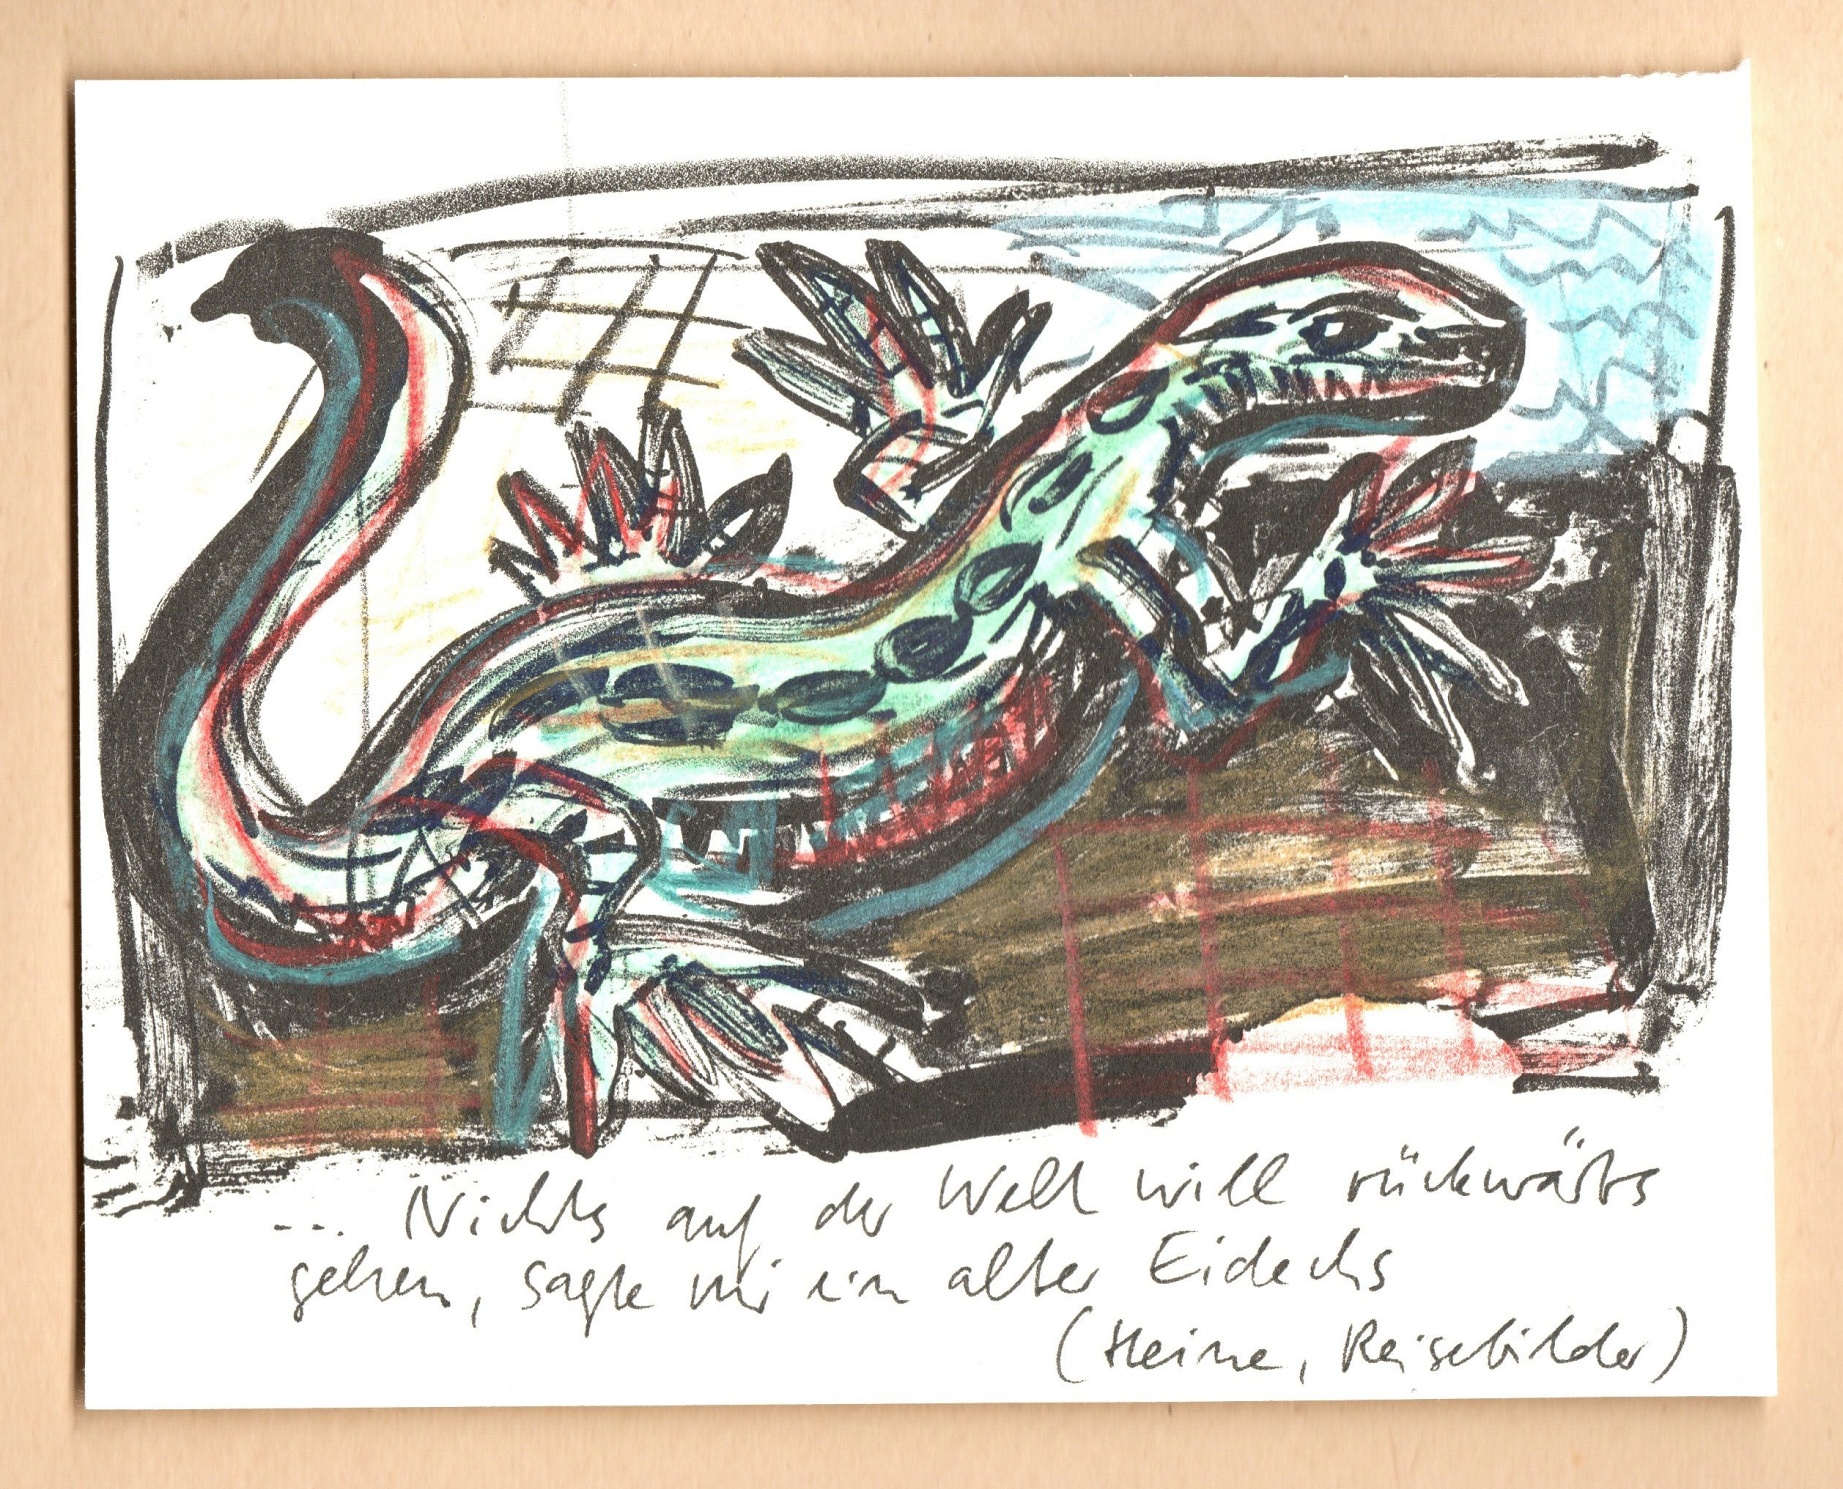 ... Nichts auf der Welt will rückwärts
gehen, sagte mir ein alter Eidechs
(Heine, Reisebilder)